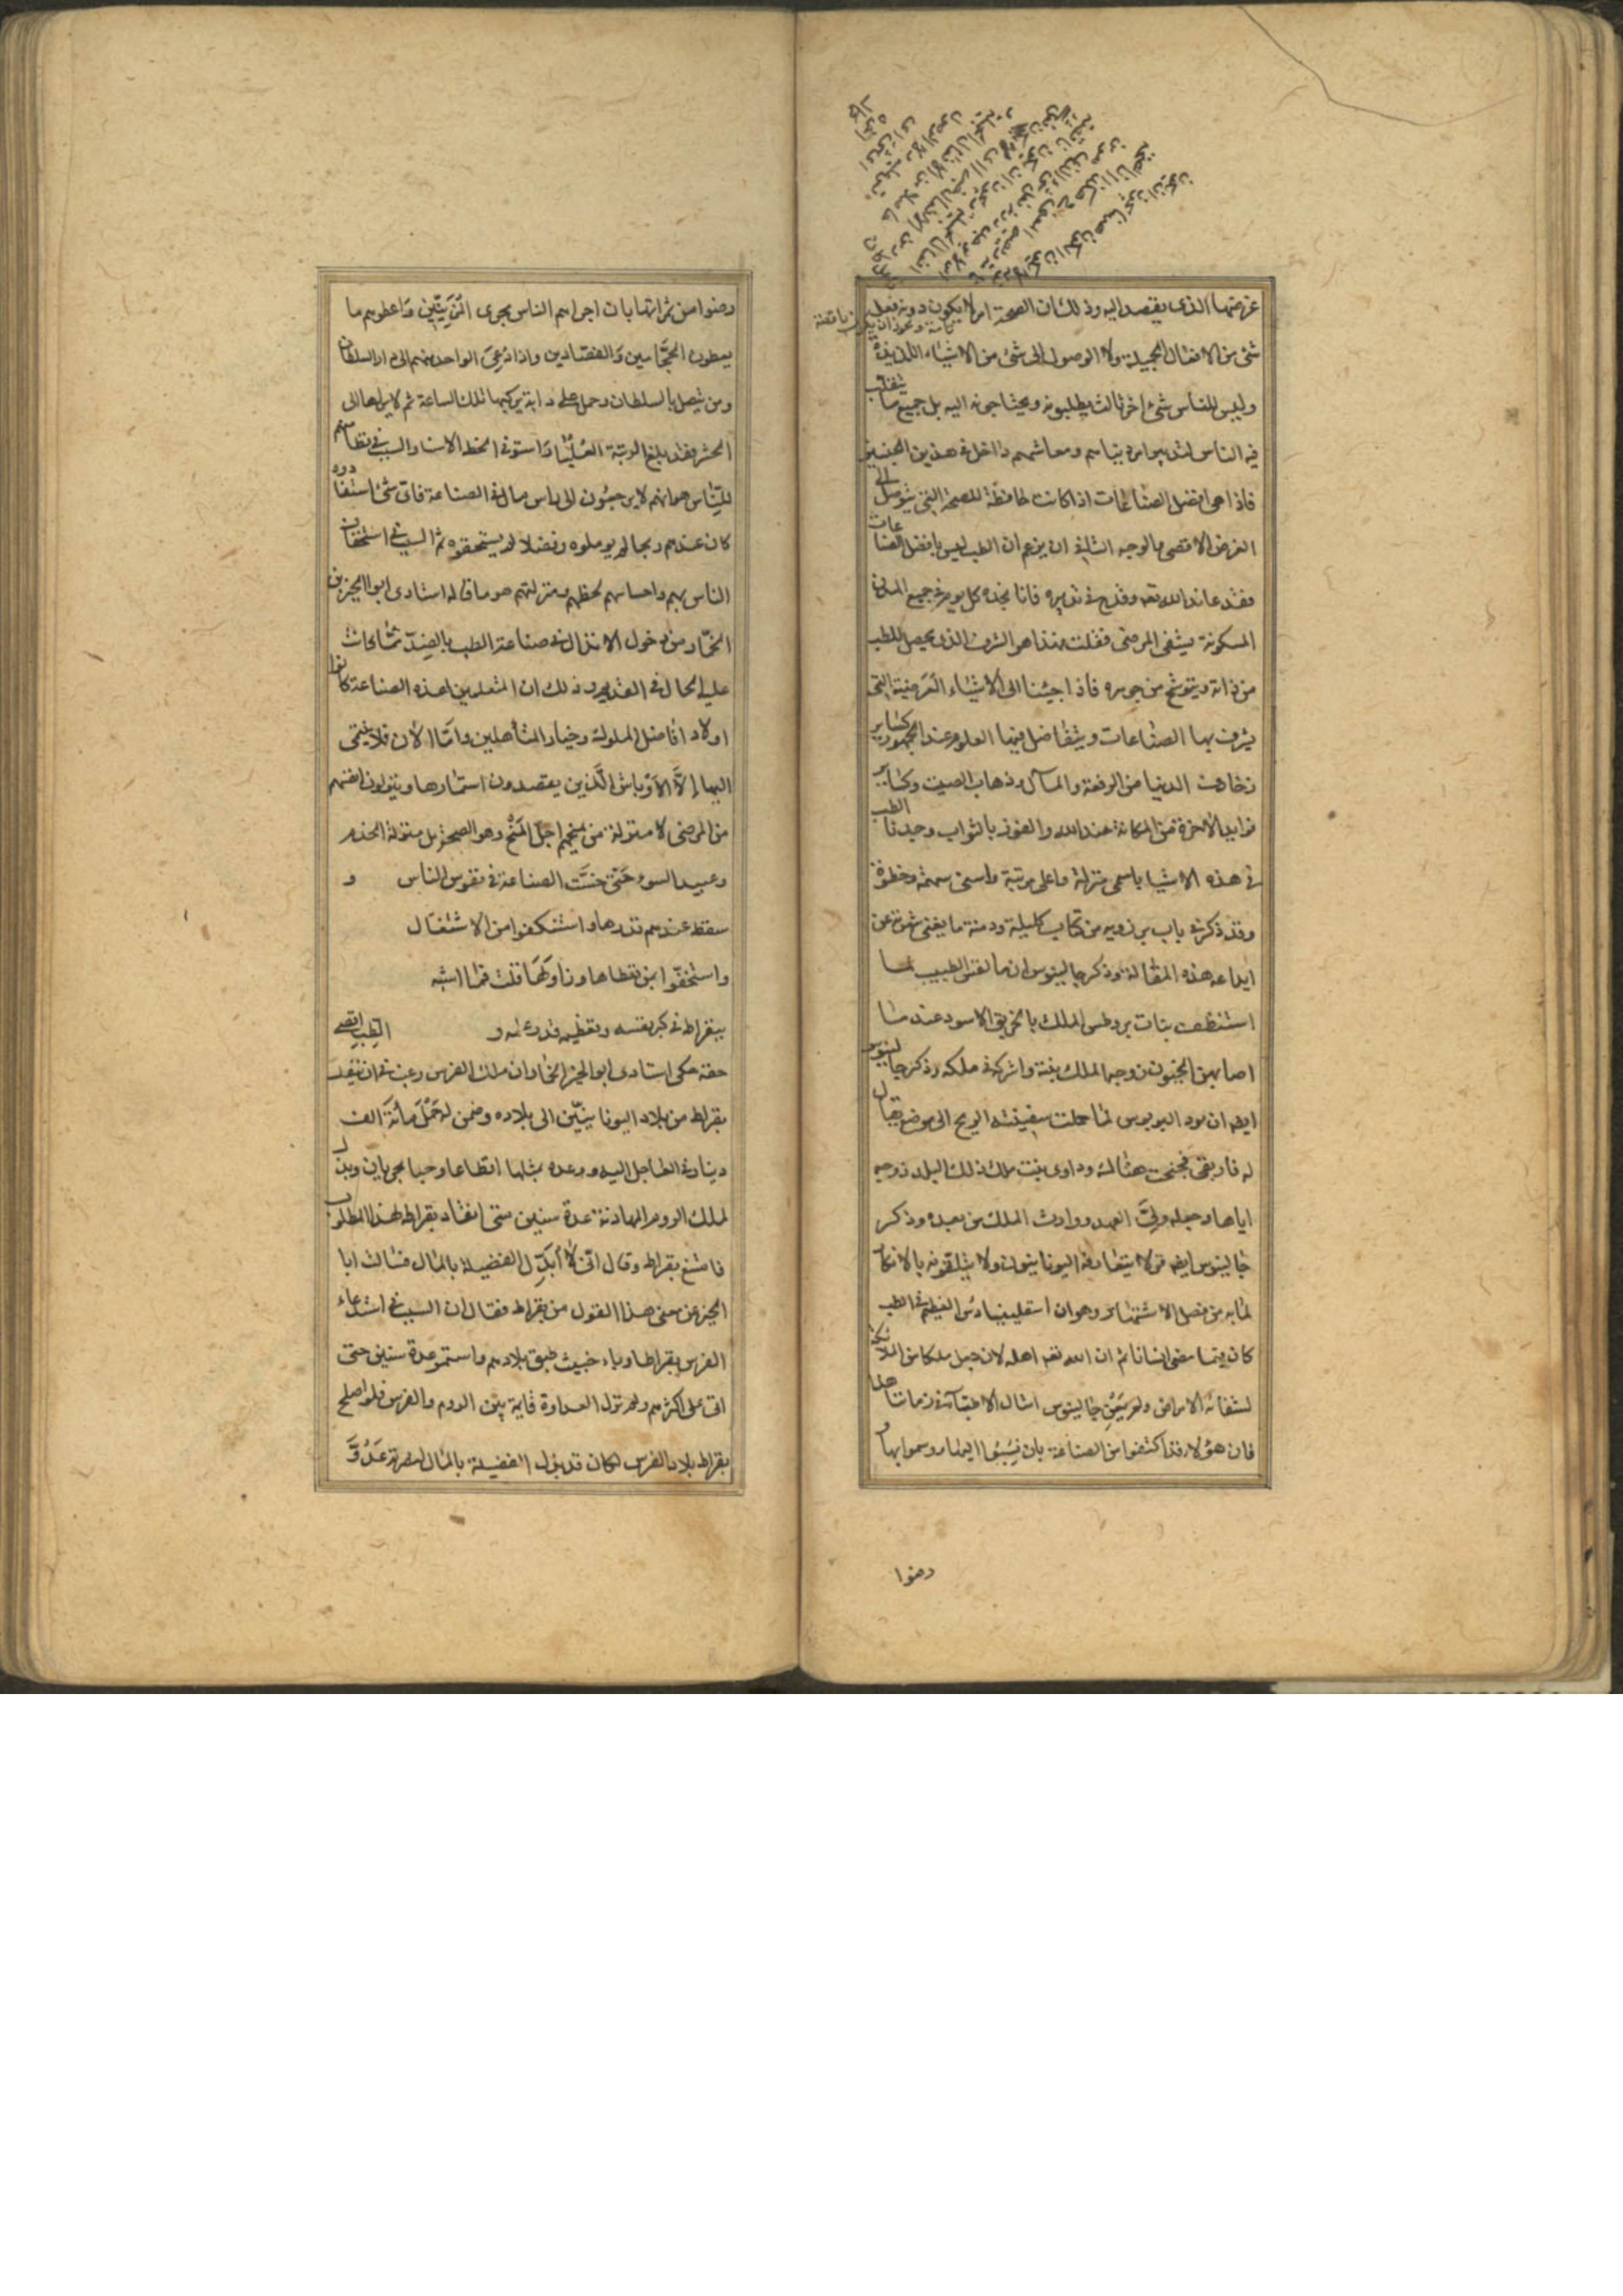 غرضها الذى يقصد اليه وذلك ان الصحة امر لا يكون دونه فعل
شئ من الافعال الجميلة ولا الوصول الى شئ من الاشياء اللذيذة
وليس للناس شئ اخر ثالث يطلبونه ويحتاجونه اليه بل جميع ما يتقلب
فيه الناس لتدبير امر دنياهم ومعاشهم داخل فى هذين الجنسين
فاذا هى افضل الصناعات اذا كانت حافظة للصحة التى يتوصل الى
الغرض الاقصى بها الوجه الثانى ان يزعم ان الطب ليس بافضل الصناعات
فقد عاند الله تعه وقدح فى تدبيره فانا نجده كل يوم فى جميع المدن
المسكونة يشفى المرضى فقلت هذا هو الشرف الذى يحصل للطب
من ذاته ويتوشح من جوهره فاذا جئنا الى الاشياء العرضية التى
يشرف بها الصناعات ويتفاضل بينها العلوم عند الجمهور كتاير
زخارف الدنيا من الرفعة والمال وذهاب الصيت وكتاير
فوايد الاخرة من المكانة عند الله والفوز بالثواب وجدنا الطب
فى هذه الاشيا باسمى منزلة واعلى مرتبة واسنى سهمة وحظوة
وقد ذكر فى باب برزويه من كتاب كليلة ودمنة ما يغنى شهرته عن
ايداعه هذه المقالة وذكر جالينوس ان مالقس الطبيب لما
استنظف بنات بروطس الملك بالخربق الاسود عند ما
اصابهن الجنون زوجه الملك بنته واشركه فى ملكه وذكر جالينوس
ايضه ان بود اليريوس لما حملت سفينته الريح الى موضع يقال
له فاريقى فجنحت هنالك وداوى بنت ملك ذلك البلد زوجه
اياها وجعله ولى العهد ووارث الملك من بعده وذكر
جالينوس ايضه قولا يتعارفه اليونانيون ولا يتلقونه بالانكار
لما به من فضل الاشتهار وهو ان اسقليبيادس العظيم فى الطب
كان فيما مضى انسانا ثم ان الله تعه اهله لان جعل ملكا من الملائكة
لشفائه الامراض ولم يعن جالينوس امثال الاطباء فى زماننا هذا
فان هؤلاء قد اكتفوا من الصناعة بان نسبوا اليها ورسموا بها و
رضوا
رضوا من ثمراتها بان اجراهم الناس مجرى المزينين واعطوهم ما
يعطون الحجامين والفصادين واذا دعى الواحد منهم الى دار السلطان
ومن يتصل بالسلطان وحمل على دابة يركبها تلك الساعة ثم لا يراها الى
الحشر فقد بلغ الرتبة العليا واستوفى الحظ الاسنا والسبب فى نظامهم
للناس هو انهم لا يرجعون الى راس مال فى الصناعة فاى شئ استفادوه
كان عندهم ربحا لم يوملوه وفضلا لم يستحقوه ثم السبب فى استخفاف
الناس بهم واحساسهم لحظهم ومنزلتهم هو ما قاله استادى ابو الخير بن
الخمار من دخول الانذال فى صناعة الطب بالضد مما كانت
عليه الحال فى القديم وذلك ان المتعلمين لهذه الصناعة كانوا
اولاد افاضل الملوك وخيار المتأهلين واما الان فلا ينتمى
اليها الا الاوباش الذين يقصدون استمارها وينزلون انفسهم
من المرضى لا منزلة من يمنحهم اجل المنح وهو الصحة بل منزلة الخدم
وعبيد السوء حتى خست الصناعة فى نفوس الناس و
سقط عندهم قدرها واستنكفوا من الاشتغال
واستخفوا بمن تعطاها وزاولها قلت فما اشبه
ببقراط فى كبر نفسه وتعظيمه قدر علمه و الطب اقصى
حقه حكى استادى ابو الخير الخمار ان ملك الفرس رغب فى ان ينقل
بقراط من بلاد اليونانيين الى بلاده وضمن له حمل مائة الف
دينار فى العاجل اليه ووعده بمثلها اقطاعا وحبا يجريان وبذل
لملك الروم المهادنة عدة سنين متى انفاد بقراط لهذا المطلوب
فامتنع بقراط وقال انى لا ابدل الفضيلة بالمال فسالت ابا
الخير عن معنى هذا القول من بقراط فقال ان السبب فى استدعاء
الفرس بقراطا وباء خبيث طبق بلادهم واستمر عدة سنين حتى
اتى على اكثرهم ولم تزل العداوة قايمة بين الروم والفرس فلو اصلح
بقراط بلاد الفرس لكان قد بذل الفضيلة بالمال لنصرته عدو